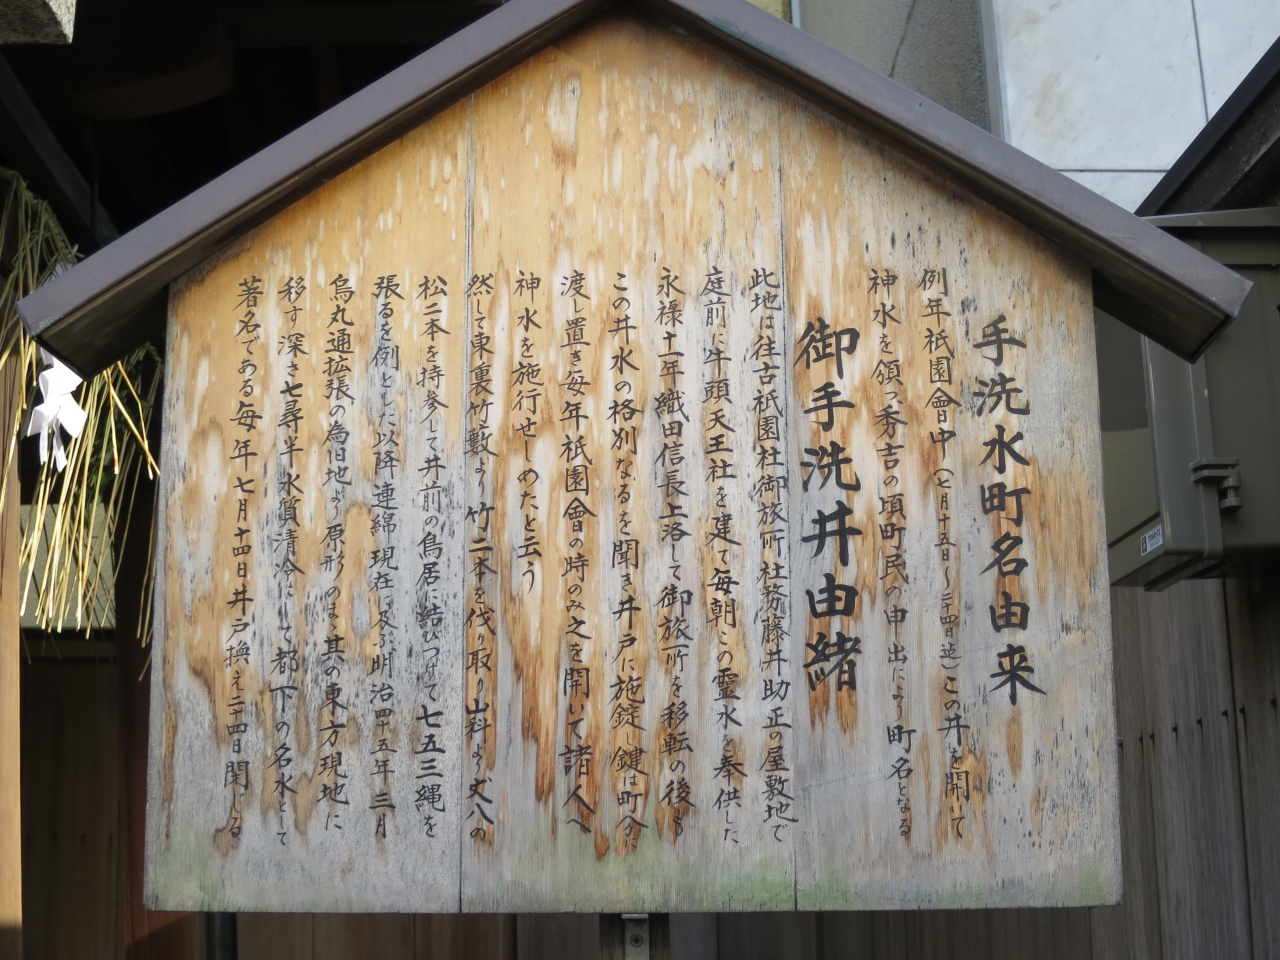 手洗水町名由来
例年祇園會中(七月十五日〜二十四日迄)この井を開いて
神水を領つ秀吉の頃町民の申出により町名となる
御手洗井由緒
此地は往古祇園社御旅所社務藤井助正の屋敷地で
庭前に牛頭天王社を建て毎朝この霊水を奉供した
永禄十一年織田信長上洛して御旅所を移転の後も
この井水の格別なるを聞き井戸に施錠し鍵は町分に
渡し置き毎年祇園會の時のみ之を開いて諸人へ
神水を施行せしめたと云う
然して東裏竹藪より竹二本を伐り取り山科より丈八の
松二本を持参して井前の鳥居に結びつけて七五三縄を
張るを例とした以降連綿現在に及ぶ明治四十五年三月
烏丸通拡張の為旧地より原形のまゝ其の東方現地に
移す深さ七尋半水質清冷にして都下の名水として
著名である毎年七月十四日井戸換え二十四日閉じる